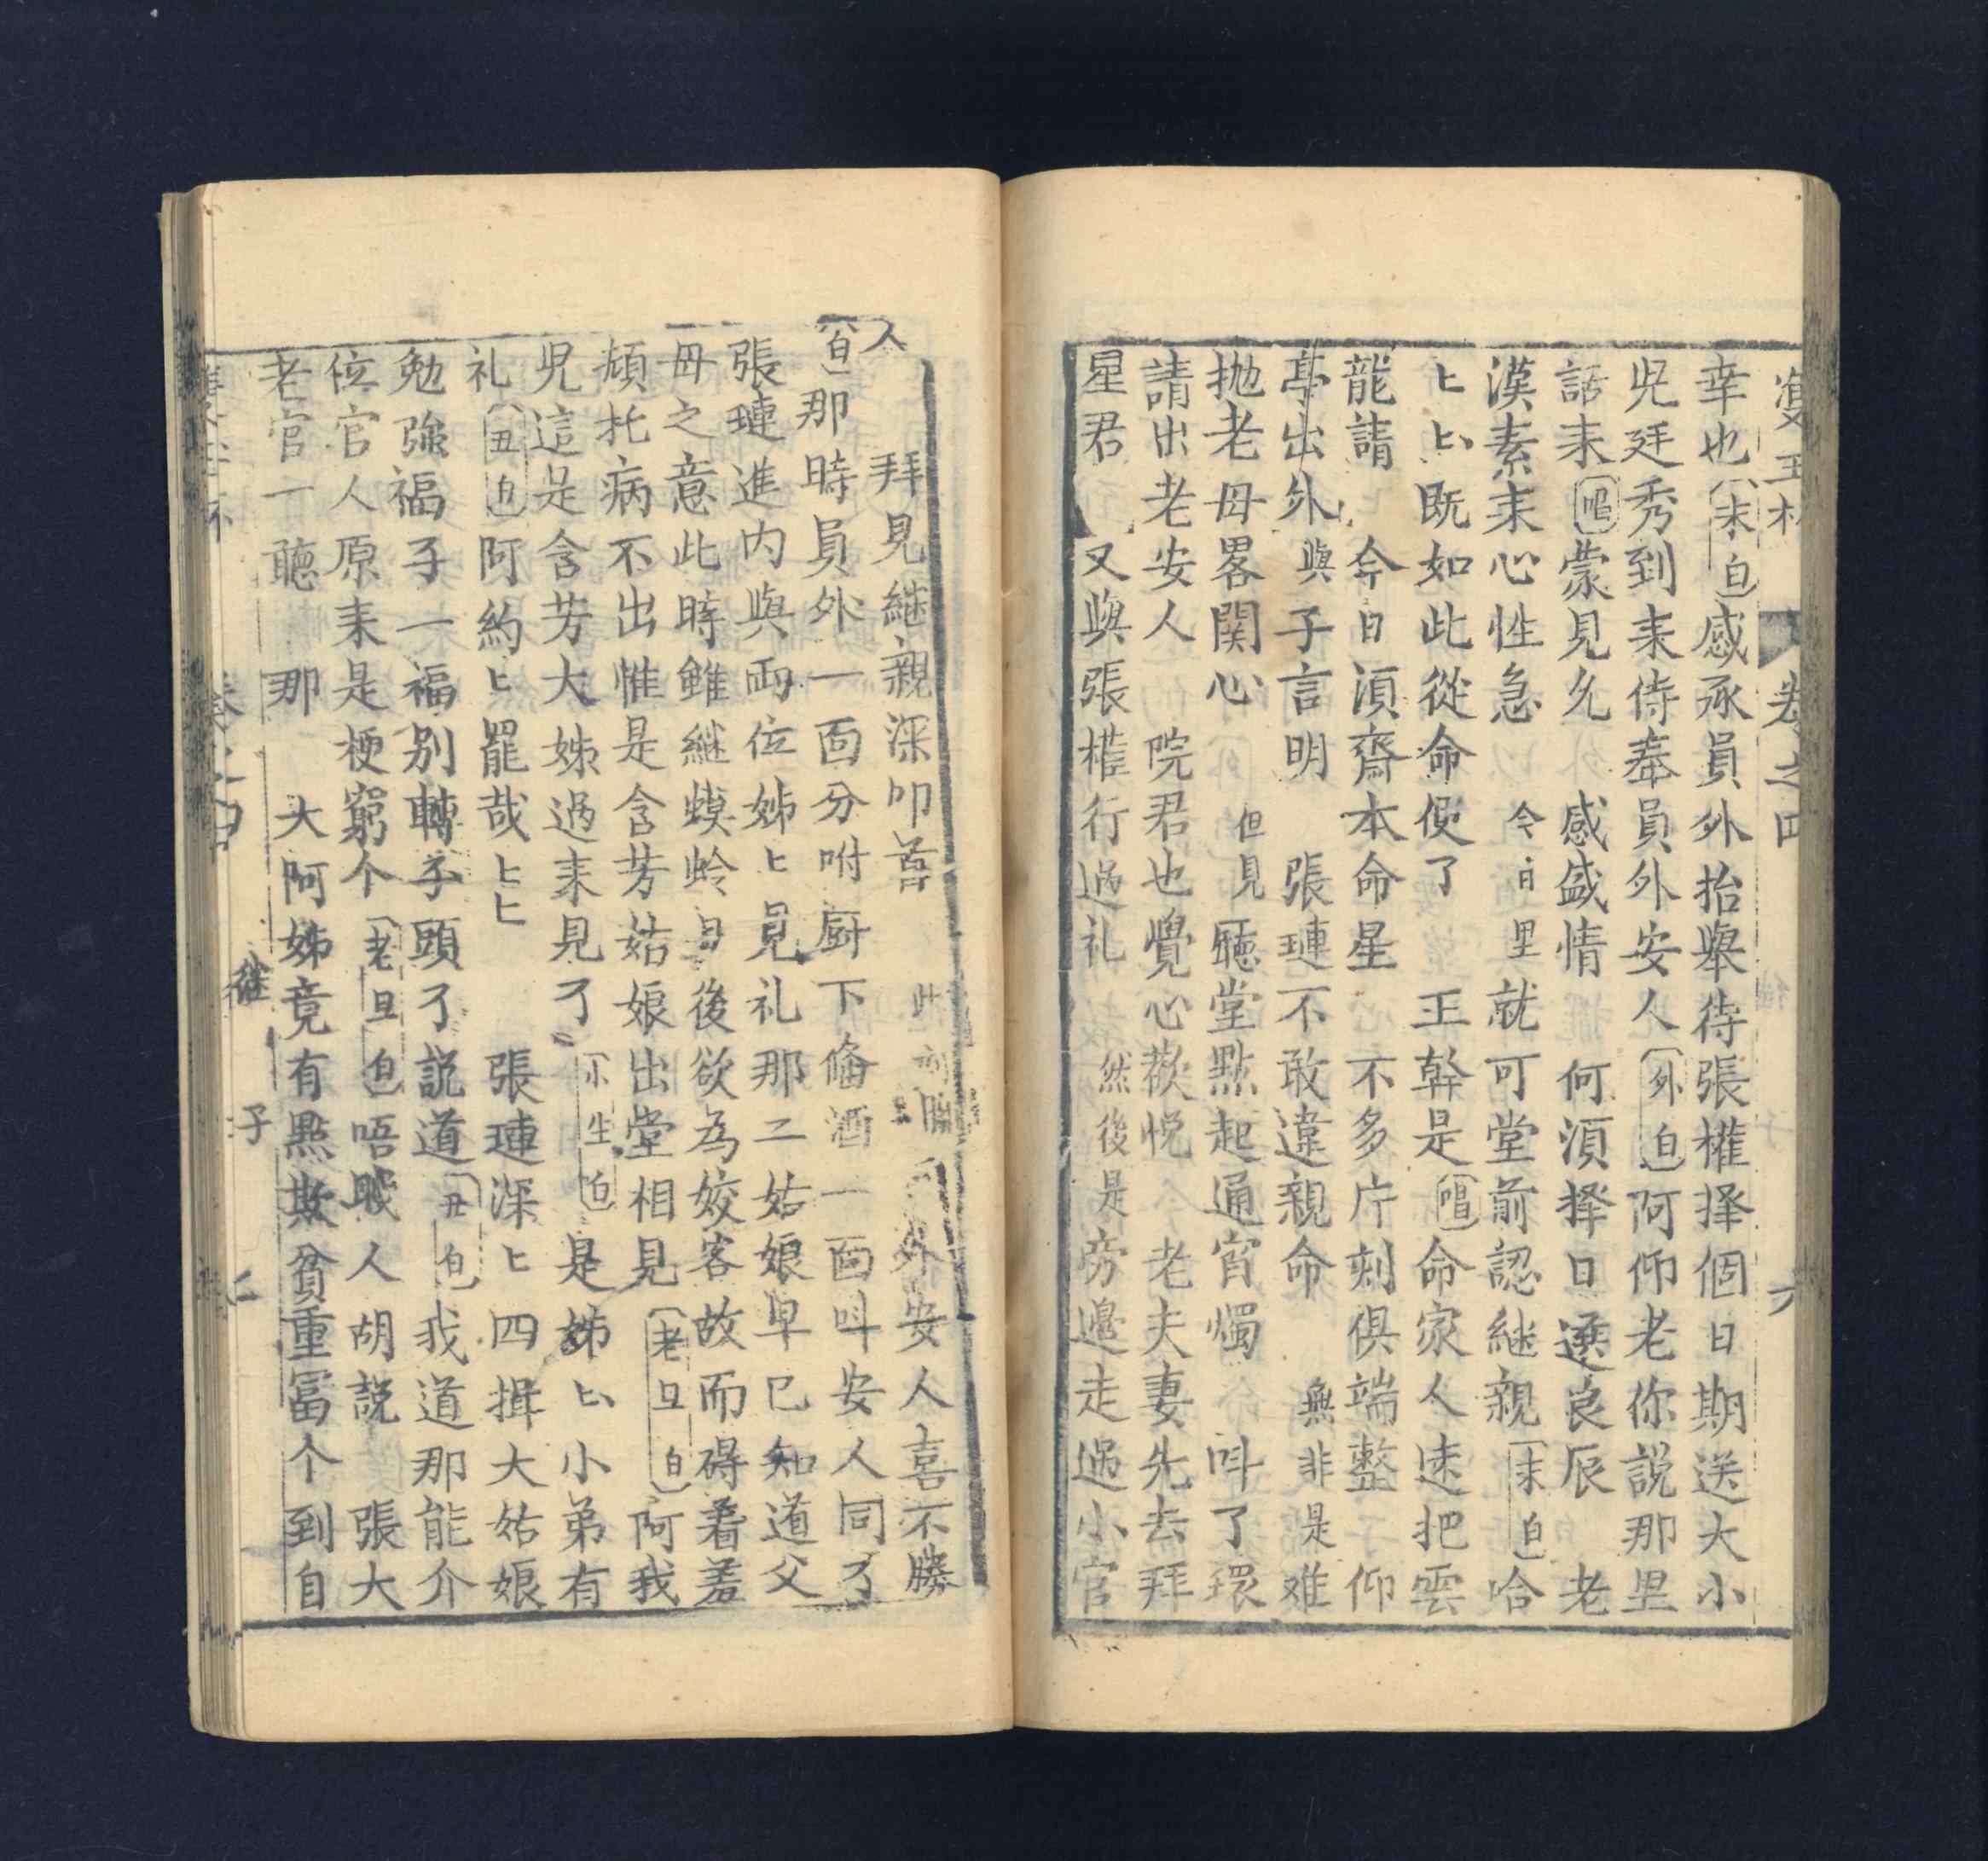 双玉杯 卷之四 六
幸也(末白)感承員外抬舉待張權擇個日期送大小
兒廷秀到来侍奉員外安人(外白)阿仰老你説那里
話来(唱)蒙見允 感盛情 何須擇日選良辰 老
漢素来心性急 今日里就可堂前認継親(末白)哈
匕匕既如此從命便了 王幹是(唱)命家人速把雲
龍請 今日須齋本命星 不多庁刻俱端整 仰
亭出外與子言明 張璉不敢違親命 無非是难
抛老母畧関心 但見廳堂點起通宵燭 呌了環
請出老安人 院君也覺心歡悦 老夫妻先去拜
星君 又與張權行過礼 然後是旁邊走過小官
人 拜見継親深叩首 外安人喜不勝
(白)那時員外一面分咐厨下偹酒一面呌安人同了
張璉進内與両位姊匕見礼那二姑娘早已知道父
母之意此時雖継螟蛉日後欲為姣客故而碍着羞
頳托病不出惟是含芳姑娘出堂相見(老旦白)阿我
児這是含芳大姊過来見了(小生白)是姊匕小弟有
礼(丑白)阿約匕罷哉匕匕 張璉深匕四揖大姑娘
勉強福子一福別轉子頭了説道(丑白)我道那能介
位官人原来是梗窮个(老旦白)唔戝人胡説 張大
老官一聽 那 大阿姊竟有點欺貧重冨个到自
卷之四